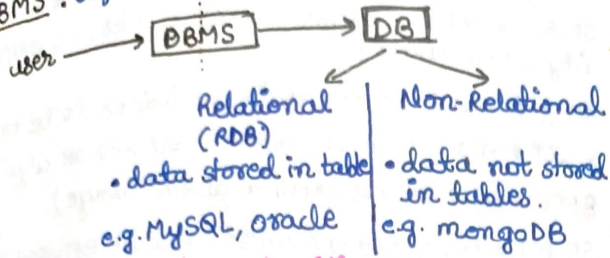 BMS.
user
DBMS
DB
Relational
(RDB)
• data stored in table
e.g. MySQL, oracle
Non-Relational
• data not stored
in tables.
e.g. mongoDB